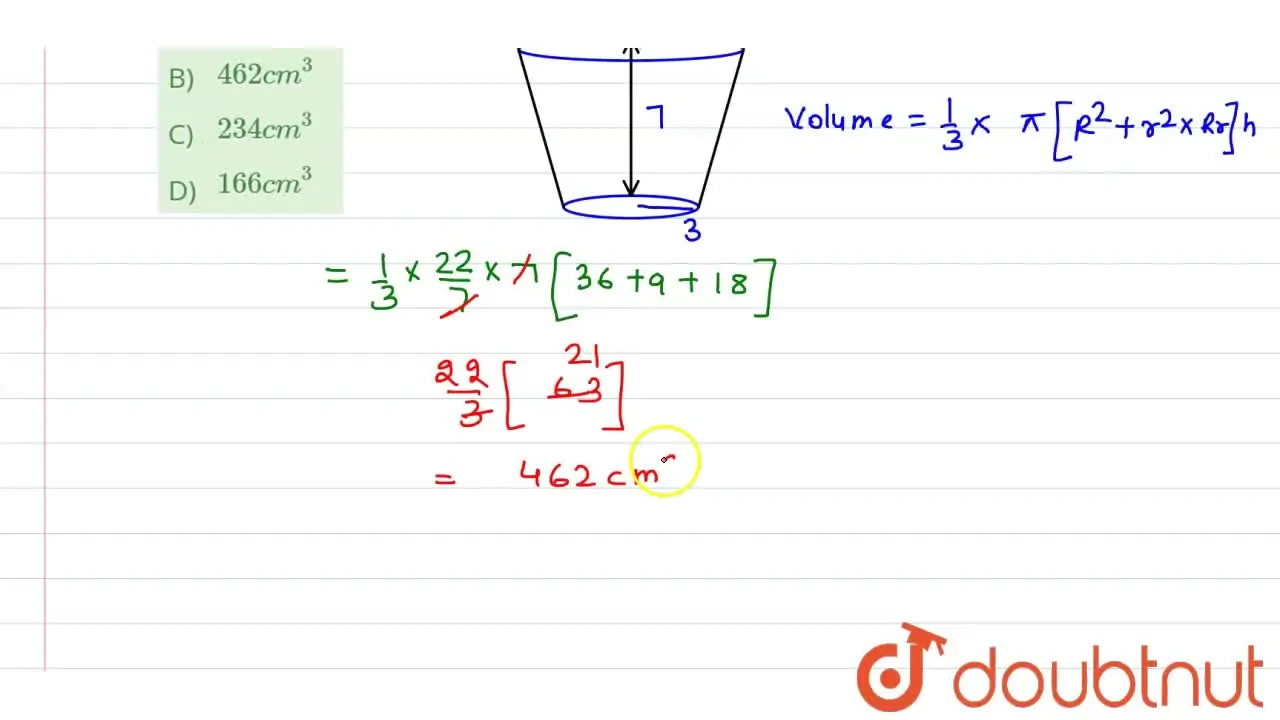 B) 462cm³
C) 234cm³
D) 166cm³
7
3
Volume = 1/3 × π [R² + r² × Rr] h
= 1/3 × 22/7 × 7 [36 + 9 + 18]
21
22/3 [63]
= 462 cm
doubtnut